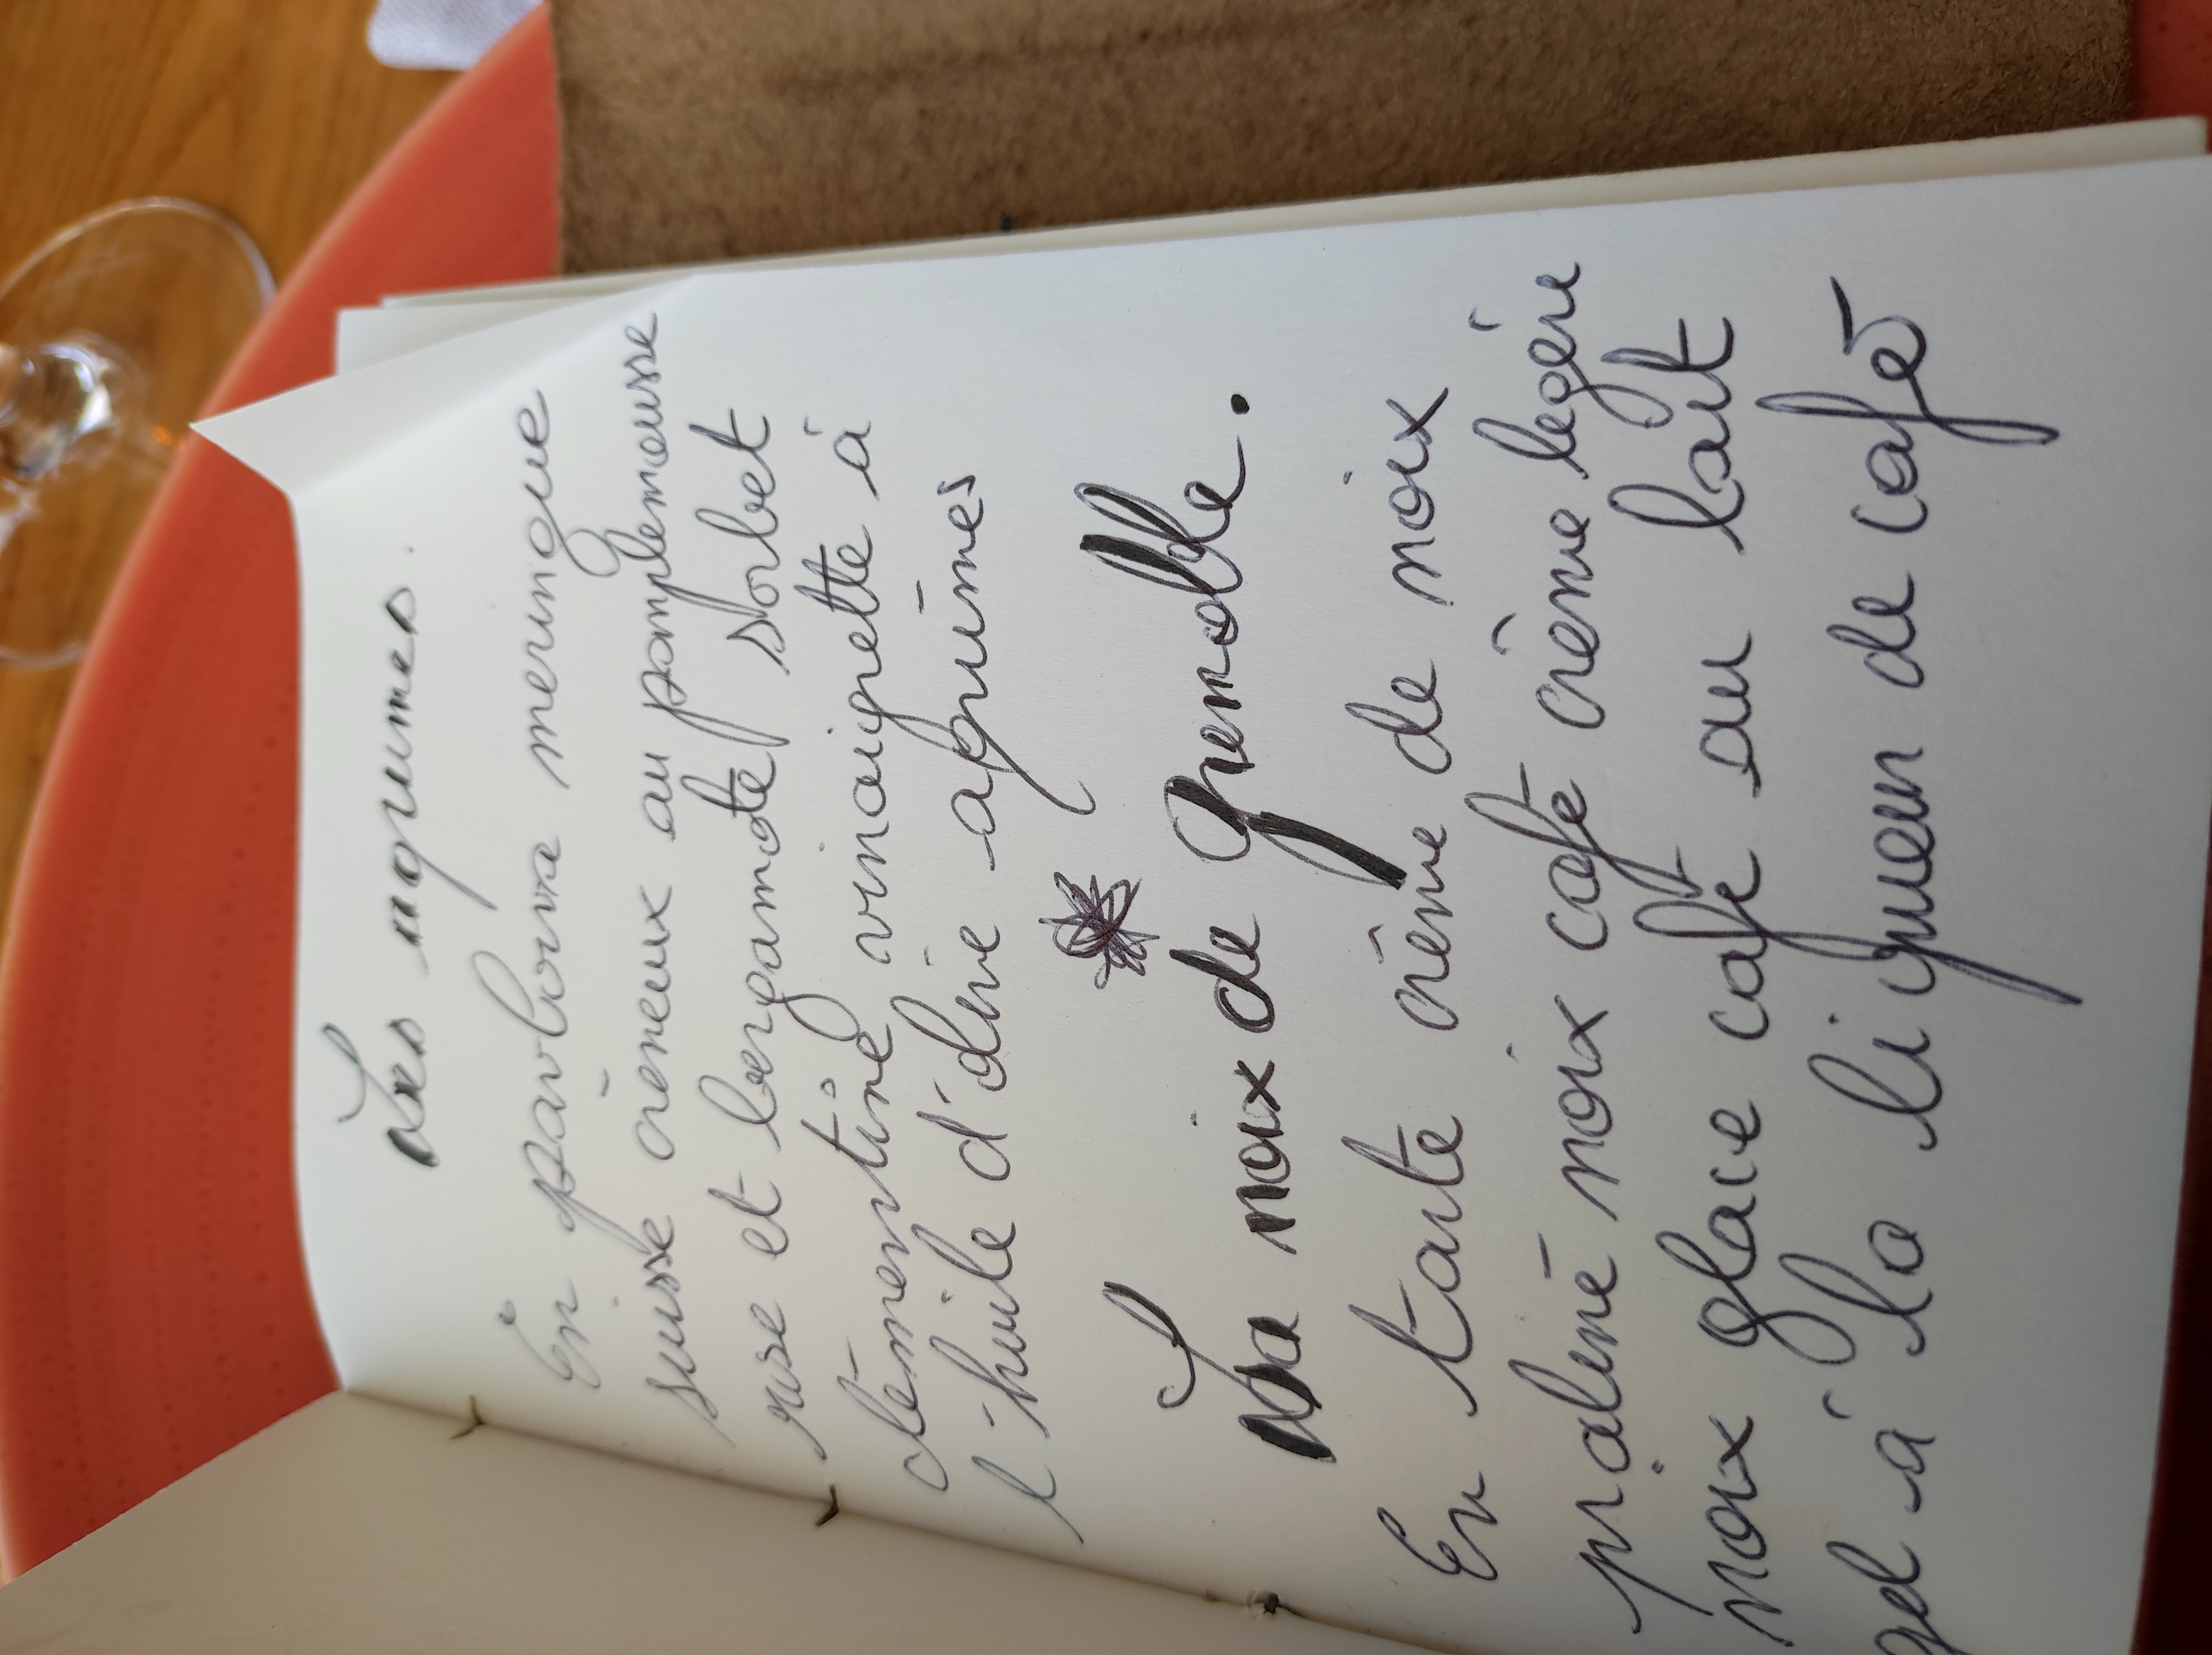 Les agrumes.
En pavlova meringue
suisse crèmeux au pamplemousse
et bergamote sorbet
clémentine vinaigrette à
l'huile d'olive agrumes
La noix de Grenoble.
En tarte crème de noix
praliné noix café crème légère
noix glace café au lait
gel à la liqueur de café